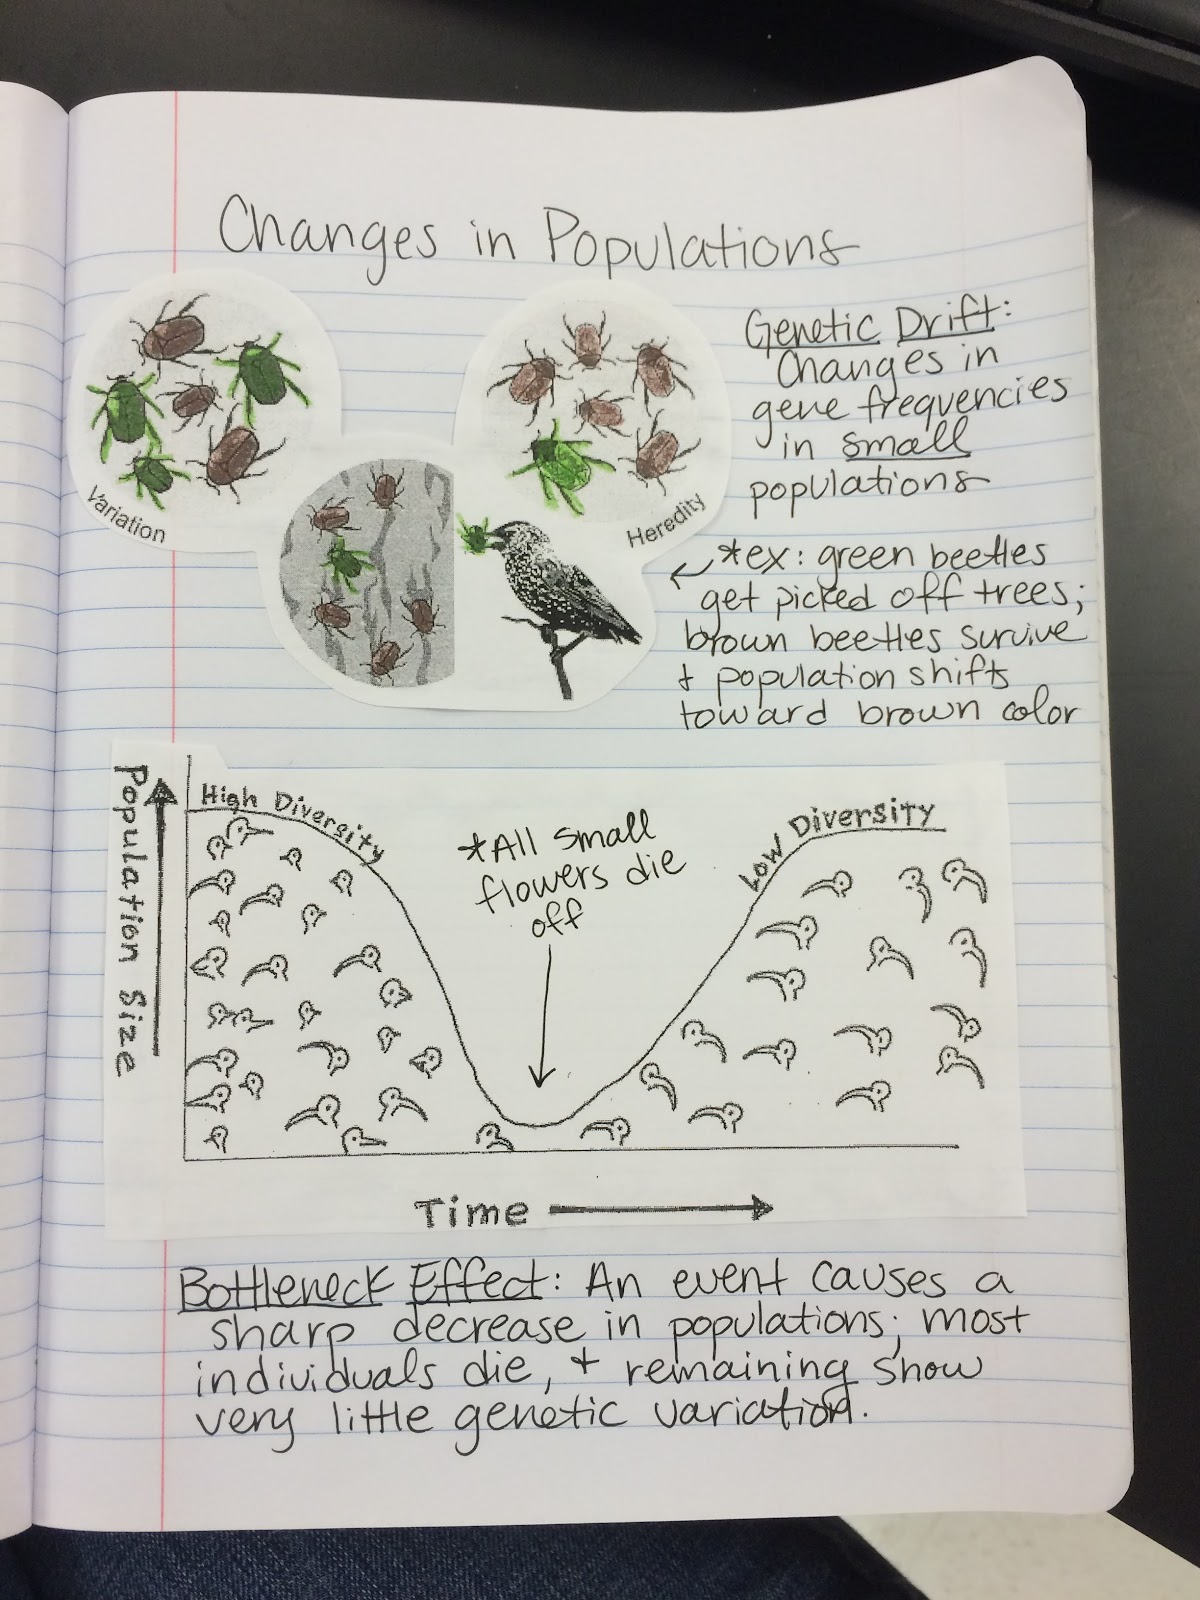 Changes in Populations
Variation
Heredity
Genetic Drift:
Changes in
gene frequencies
in small
populations
*ex: green beetles
get picked off trees;
brown beetles survive
+ population shifts
toward brown color
Population Size
High Diversity
*All small
flowers die
off
Low Diversity
Time
Bottleneck Effect: An event causes a
sharp decrease in populations; most
individuals die, + remaining show
very little genetic variation.